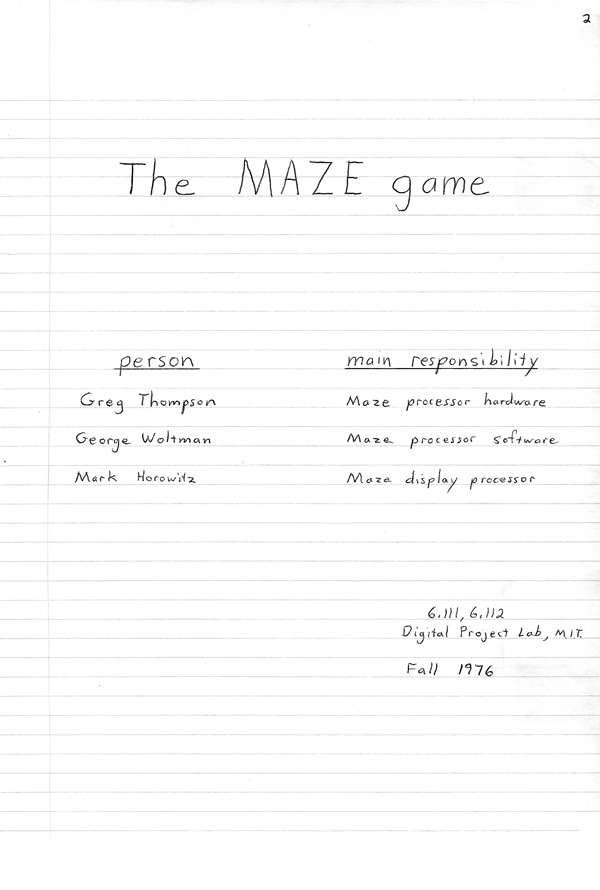 2
The MAZE game
person main responsibility
Greg Thompson Maze processor hardware
George Woltman Maze processor software
Mark Horowitz Maze display processor
6.111, 6.112
Digital Project Lab, M.I.T.
Fall 1976